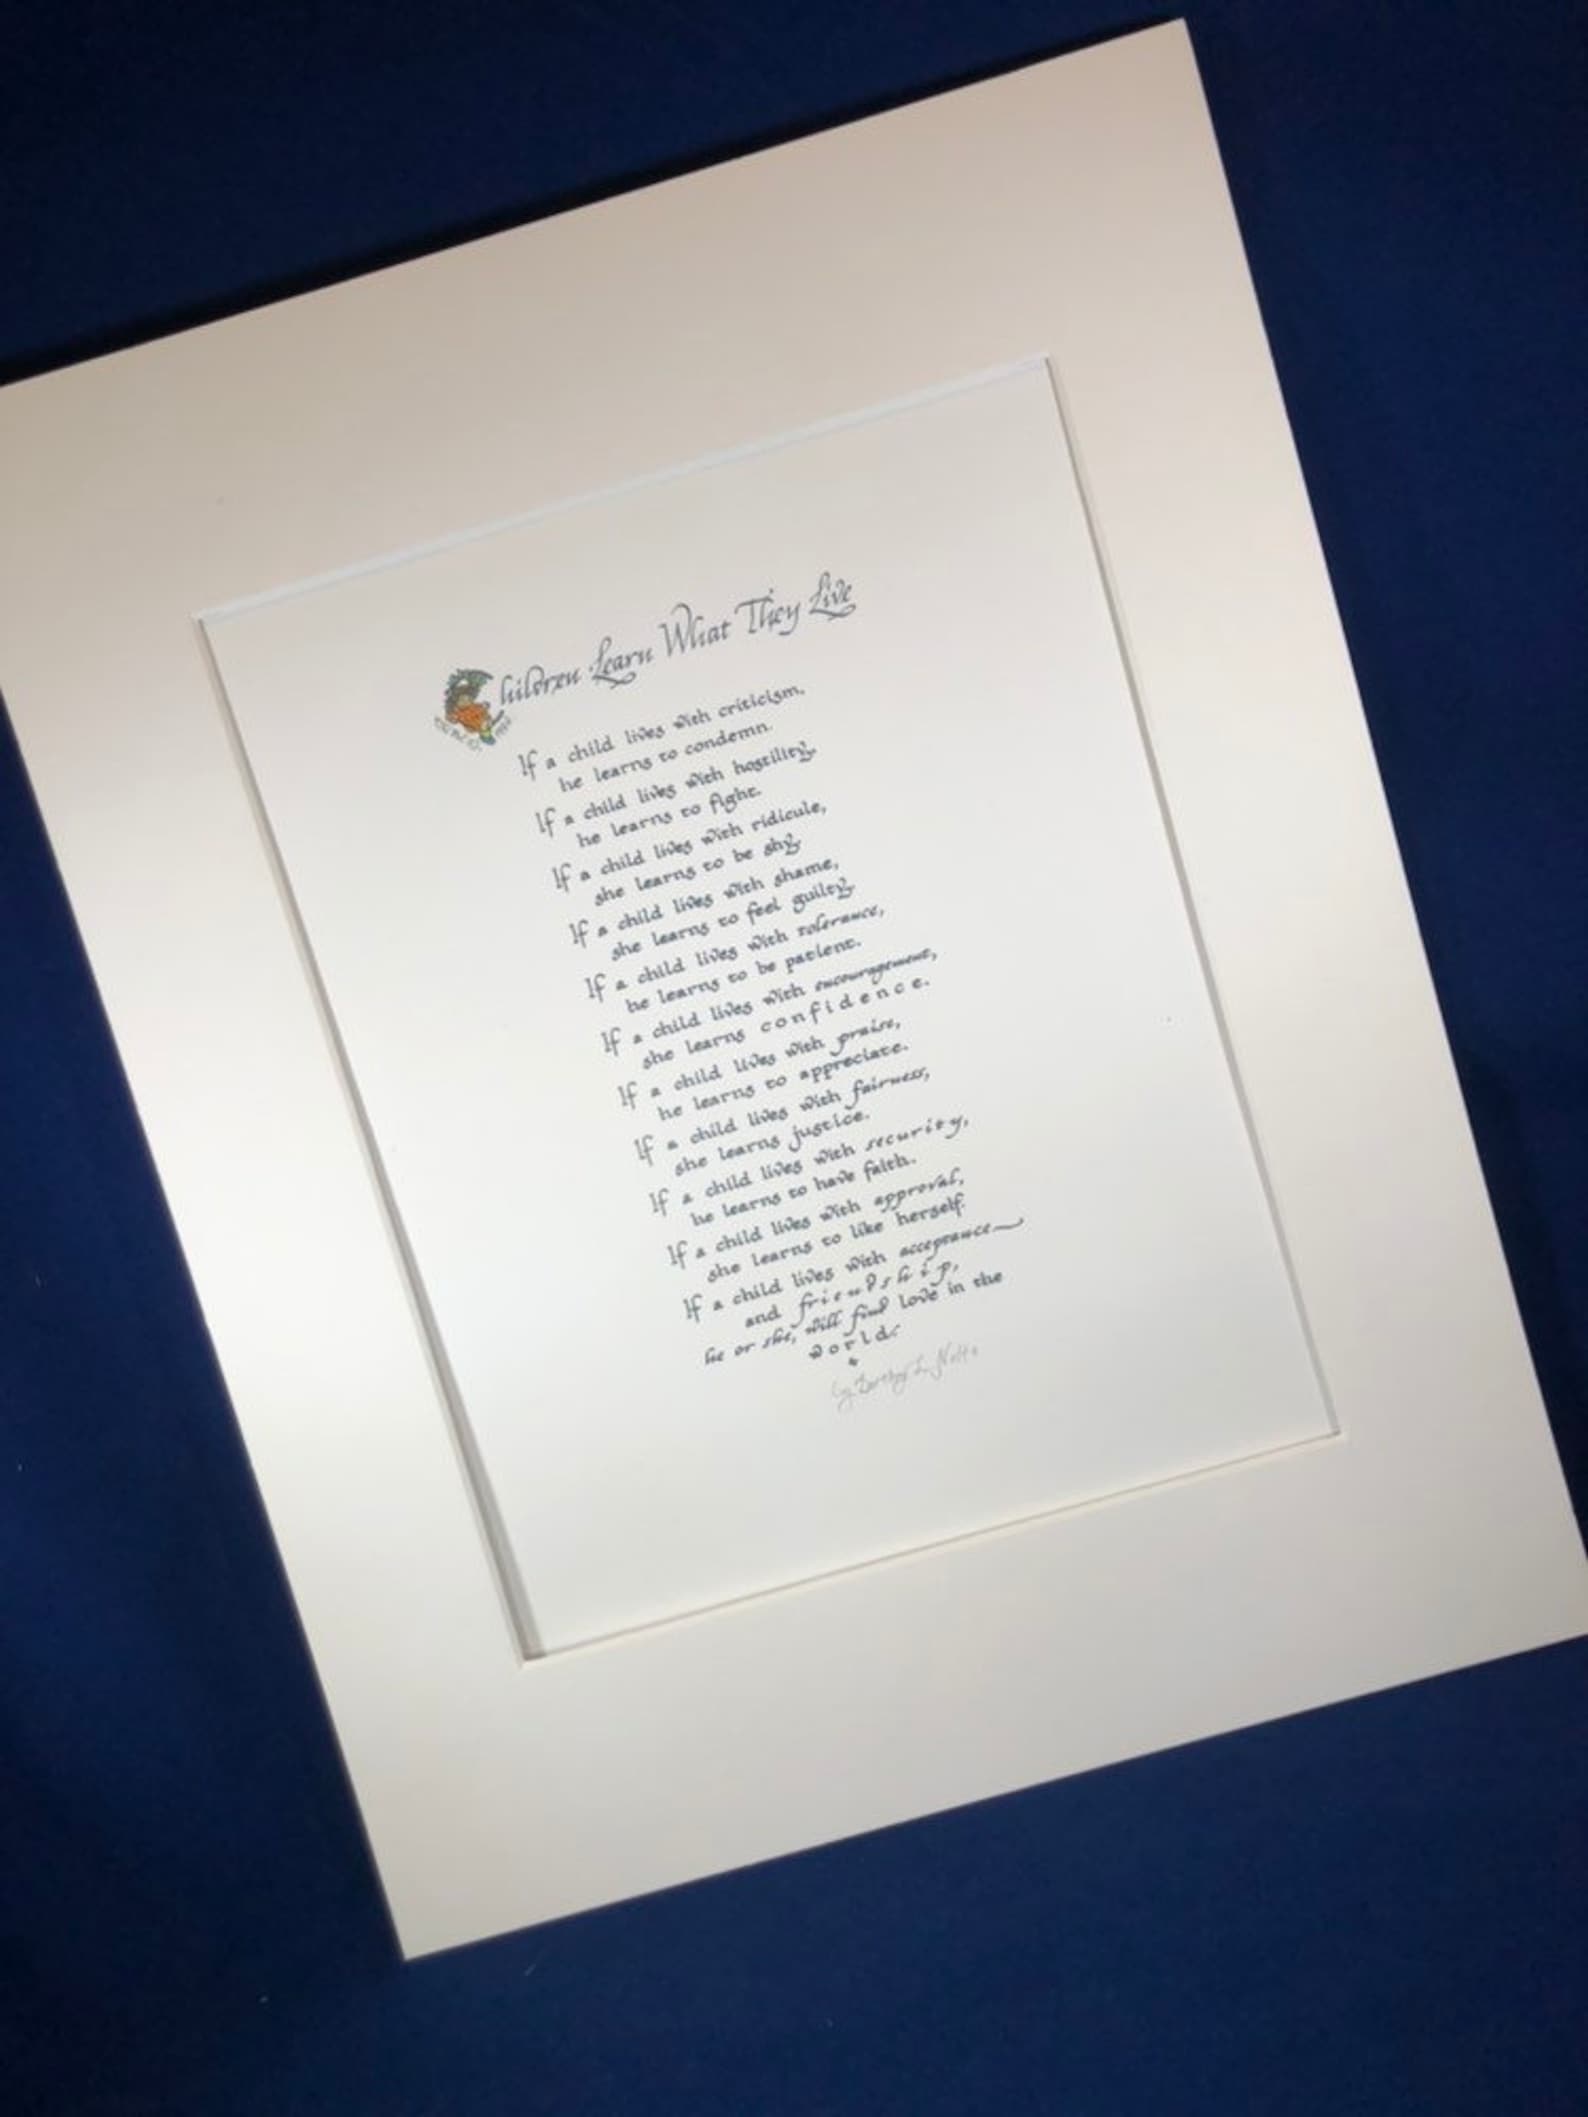 Children Learn What They Live
If a child lives with criticism,
he learns to condemn.
If a child lives with hostility,
he learns to fight.
If a child lives with ridicule,
she learns to be shy.
If a child lives with shame,
she learns to feel guilty.
If a child lives with tolerance,
he learns to be patient.
If a child lives with encouragement,
she learns confidence.
If a child lives with praise,
he learns to appreciate.
If a child lives with fairness,
she learns justice.
If a child lives with security,
he learns to have faith.
If a child lives with approval,
she learns to like herself.
If a child lives with acceptance
and friendship,
he or she, will find love in the
world.
by Dorothy L. Nolte